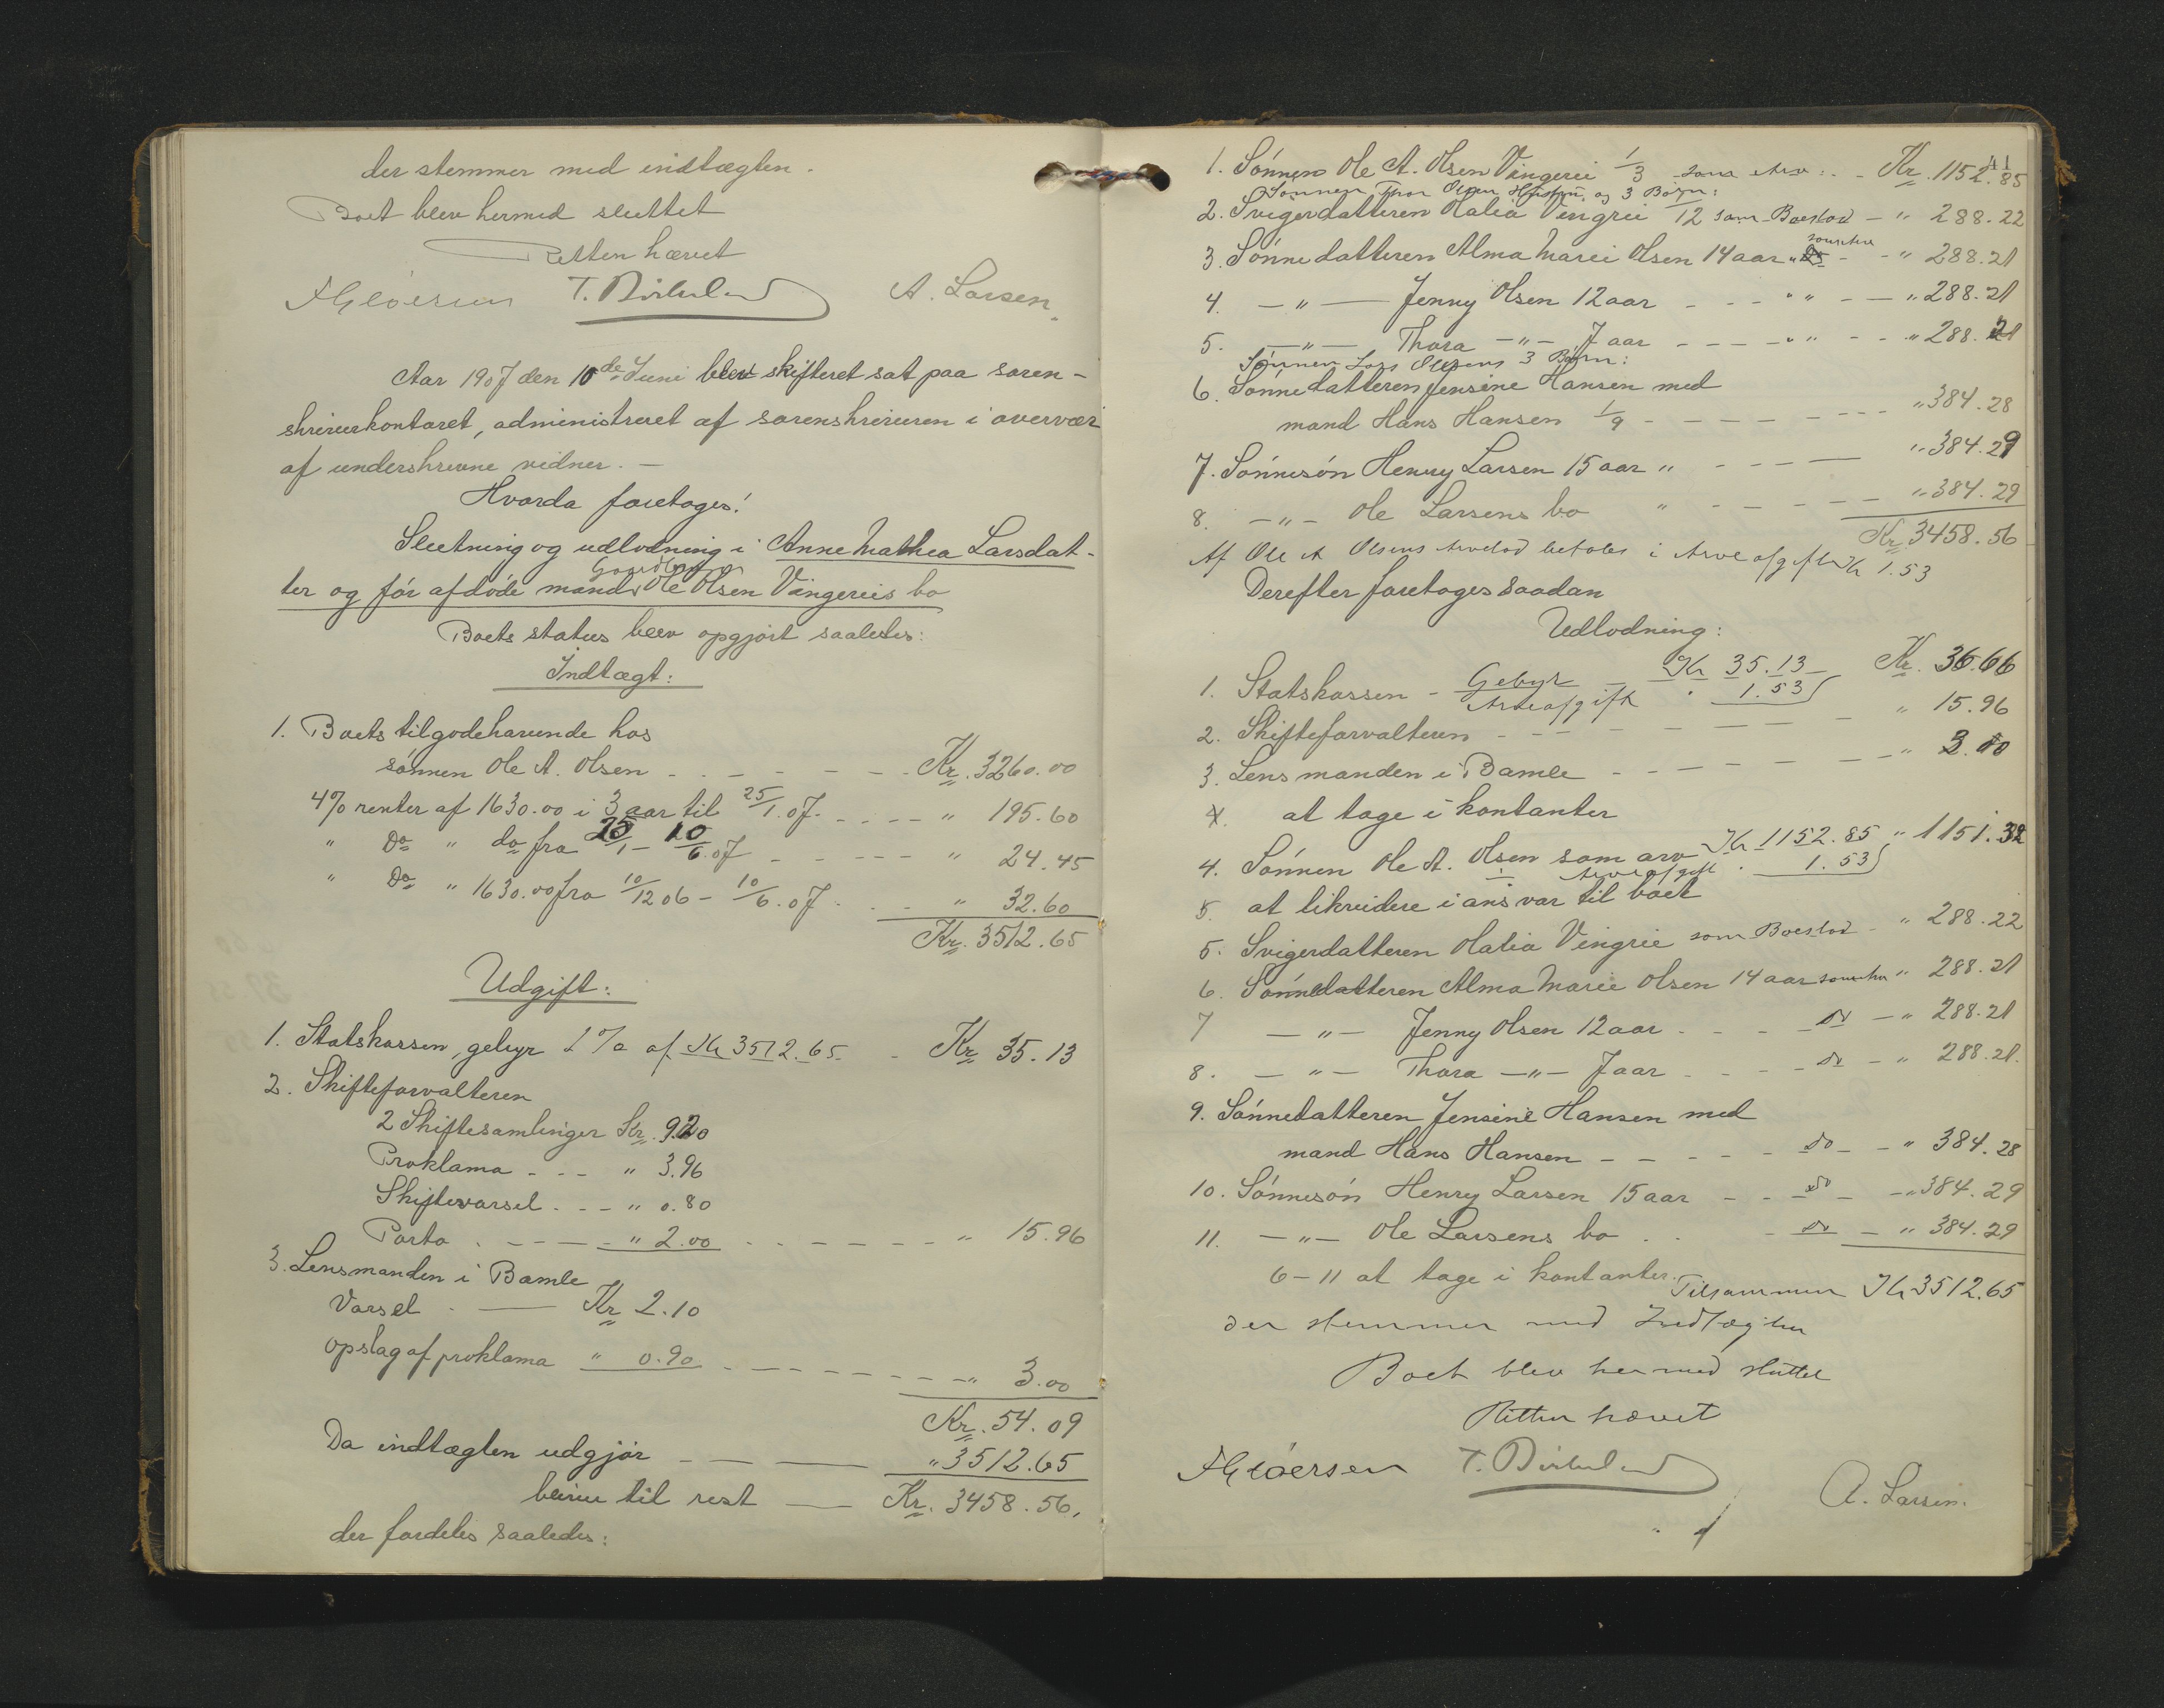 der stemmer med indtægten.
Boet blev hermed sluttet
Retten hævet
T. A. Larsen.
Aar 1907 den 10de Juni blev skifteret sat paa soren-
skriverkontoret, administreret af sorenskriveren i overvær
af underskrevne vidner. —
Hvorda foretoges:
Slutning og udlodning i Anne Mathea Larsdat-
ter og før afdøde mand Ole Olsen Vingereis bo
Boets status blev opgjort saaledes:
Indtægt:
1. Boets tilgodehavende hos
sønnen Ole A. Olsen - - - - Kr. 3260.00
4% renter af 1630.00 i 3 aar til 25/1.07. - - - - " 195.60
" Do " do fra 25/1 - 10/6.07 - - - - " 24.45
" Do " 1630.00 fra 10/12 06 - 10/6.07 - - " 32.60
Kr. 3512.65
Udgift:
1. Statskassen, gebyr 1 % af Kr 3512.65. - Kr 35.13
2. Skifteforvalteren
2 Skiftesamlinger Kr. 9.20
Proklama - - - " 3.96
Skiftevarsel. - - " 0.80
Porto . - - - " 2.00 - - - - - - " 15.96
3. Lensmanden i Bamle
Varsel - — Kr 2.10
opslag af proklama " 0.90 - - - - - - " 3.00
Kr. 54.09
Da indtægten udgjør - — — " 3512.65
bliver til rest — Kr. 3458.56.
der fordeles saaledes:
1. Sønnen Ole A. Olsen Vingerei 1/3 som Arv . - Kr. 1152.85
Sønnen Thor Olsens Hustru og 3 Børn:
2. Svigerdatteren Halia Vingrei 1/12 som Boeslod - " 288.22
som Arv
3. Sønnedatteren Alma Marie Olsen 14 aar " Do - - " 288.21
4. — " — Jenny Olsen 12 aar - - - " " - — " 288.21
5. — " — Thora — " — 7 aar - - - - " " - - " 288.21
Sønnen Lars Olsens 3 Børn:
6. Sønnedatteren Jensine Hansen med
mand Hans Hansen 1/9 - - - - - - - - " 384.28
7. Sønnesøn Henry Larsen 15 aar " - - - — " 384.29
8. — " — Ole Larsens bo " - - - - - " 384.29
Kr 3458.56
Af Ole A Olsens Arvelod betales i Arveafgift Kr 1.53
Derefter foretages saadan
Udlodning:
1. Statskassen - Gebyr - Kr 35.13 Kr. 36.66
Arveafgift " 1.53
2. Skifteforvalteren - - - - - - - " 15.96
3. Lensmanden i Bamle - - - - - - - " 3.00
4. at tage i kontanter
4. Sønnen Ole A. Olsen som arv Kr 1152.85 " 1151.32
Arveafgift . 1.53
5. at likvidere i ansvar til boet
5. Svigerdatteren Halia Vingrie som Boeslod - " 288.22
6. Sønnedatteren Alma Marie Olsen 14 aar som Arv " 288.21
7 — " — Jenny Olsen 12 aar - - - Do — " 288.21
8. — " — Thora — " — 7 aar - - - - Do - " 288.21.
9. Sønnedatteren Jensine Hansen med
mand Hans Hansen - - - - - Do - - " 384.28
10. Sønnesøn Henry Larsen 15 aar - - Do - - " 384.29
11. — " — Ole Larsens bo . . - Do - " 384.29
6 - 11 at tage i kontanter.
Tilsammen Kr 3512.65
der stemmer med Indtægten
Boet blev hermed sluttet
Retten hævet
T. A. Larsen.